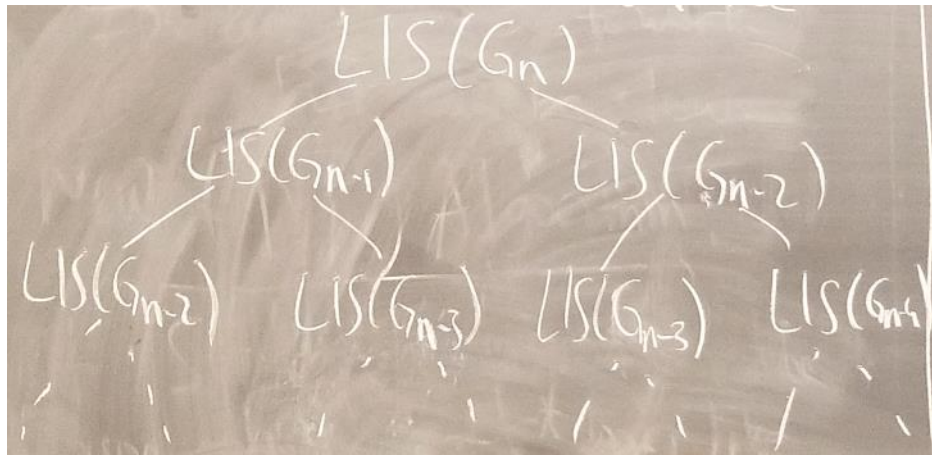 LIS(Gn)
LIS(Gn-1) LIS(Gn-2)
LIS(Gn-2) LIS(Gn-3) LIS(Gn-3) LIS(Gn-4)